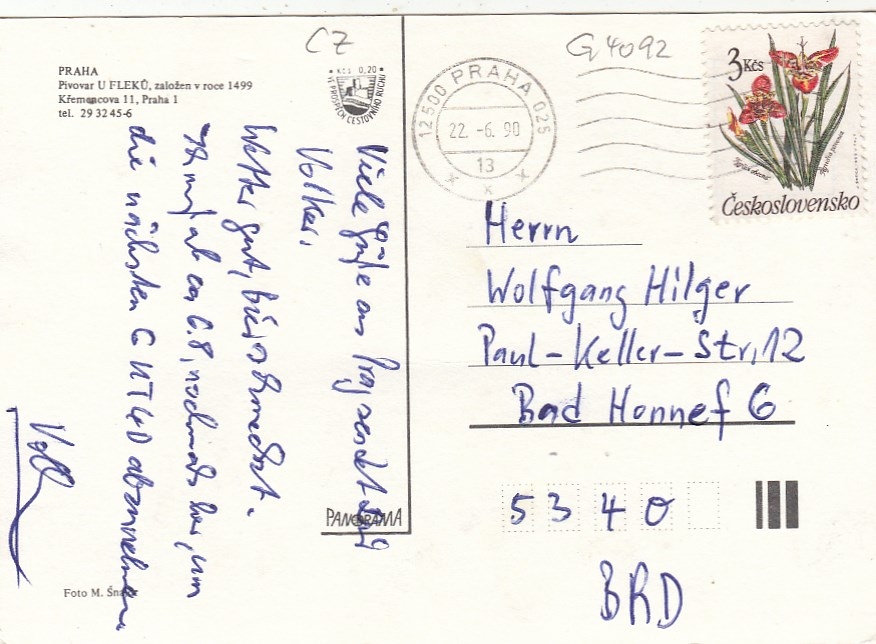 CZ
G4092
PRAHA
Pivovar U FLEKŮ, založen v roce 1499
Křemencova 11, Praha 1
tel. 29 32 45-6
Kčs 0,20
VE PROSPĚCH CESTOVNÍHO RUCHU
12500 PRAHA 025
22. -6. 90
13
3 Kčs
Československo
Viele Grüße aus Prag sendet
Volker.
Wetter gut, Bier schmeckt.
ab ca 6.8. nochmals her, um
die nächsten 6 abzunehmen
Herrn
Wolfgang Hilger
Paul-Keller-Str. 12
Bad Honnef 6
5340
BRD
PANORAMA
Foto M.